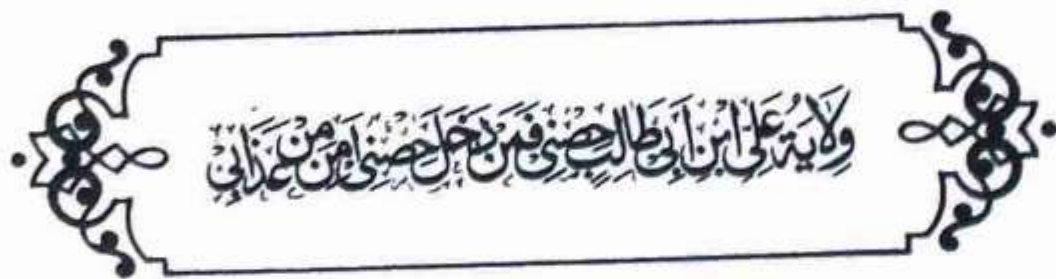 وَلَايَةُ عَلِيِّ ابْنِ أَبِي طَالِبٍ حِصْنِي فَمَنْ دَخَلَ حِصْنِي أَمِنَ مِنْ عَذَابِي